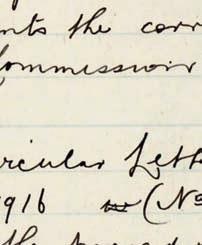 nts the corr
ommission
rcular Lett
916 (No
the